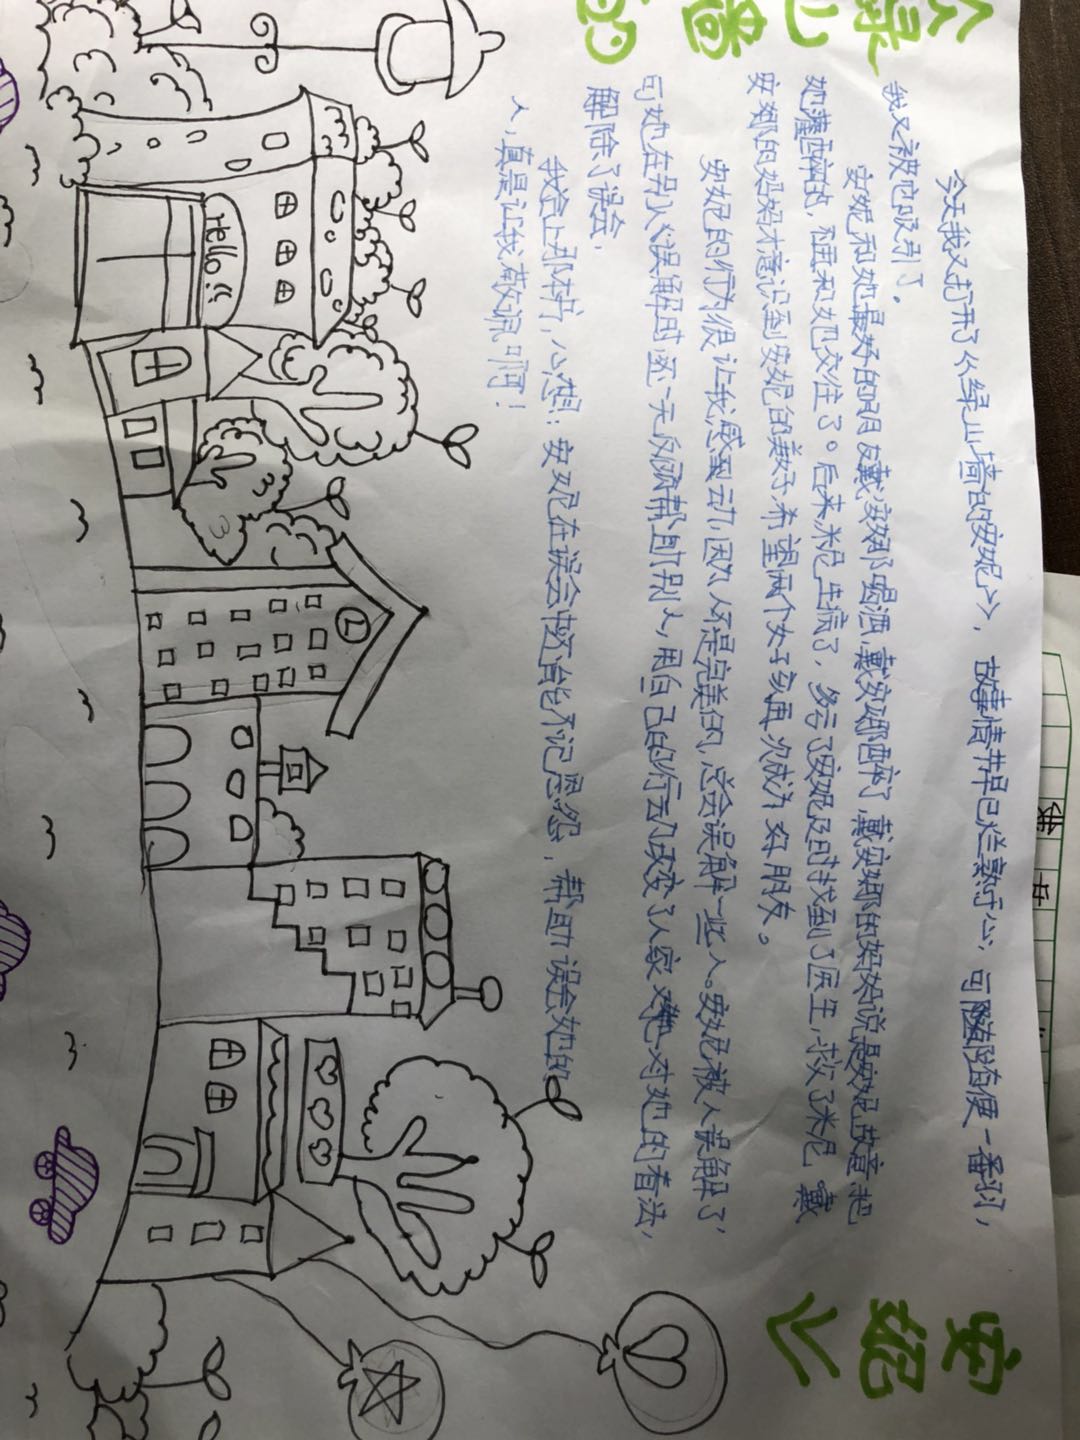 《绿山墙的
安妮》
今天我又打开了《绿山墙的安妮》，故事情节早已烂熟于心，可随便一番羽，
我又被它吸引了。
安妮和她最好的朋友戴安娜喝酒，戴安娜醉了，戴安娜的妈妈说是安妮故意把
她灌醉的，不再和她交往了。后来米妮生病了，多亏了安妮及时找到了医生，救了米妮，戴
安娜的妈妈才意识到安妮的美好，希望两个女子亥再次成为好朋友。
安妮的行为很让我感动，因为人不是完美的，总会误解一些人。安妮被人误解了，
可她在别人误解时还一无反顾帮助别人，用自己的行动改变了人家对她的看法，
解除了误会，
我合上那本书，心想：安妮在误会中还能不记恩怨，帮助误会她的
人，真是让我敬佩啊！
Hello!!